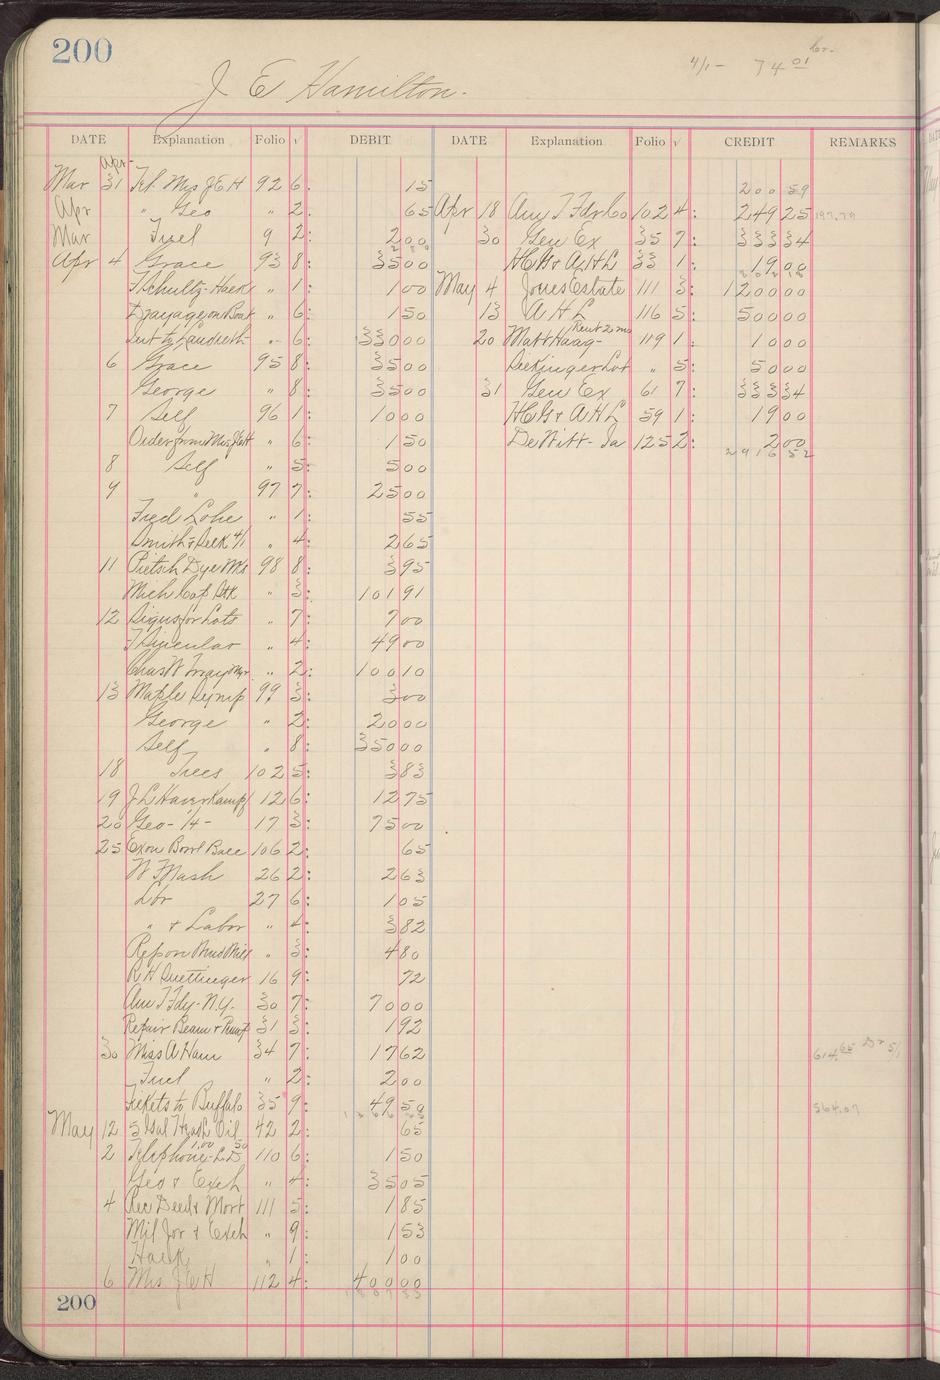 200
4/1 - 74 01 Cr.
J E Hamilton.
DATE Explanation Folio √ DEBIT DATE Explanation Folio √ CREDIT REMARKS
Apr-
Mar 31 Tel. Mrs J E H 92 6: 15 200 59
Apr " Geo " 2: 65 Apr 18 Am T Fdr Co 102 4: 249 25 197.79
Mar Fuel 9 2: 2 00 30 Gen Ex 35 7: 333 34
Apr 4 Grace 93 8: 35 00 H C G & A H L 33 1: 19 00
F Schultz-Hack " 1: 1 00 May 4 Jones Estate 111 3: 1200 00
Drayage on Boat " 6: 1 50 13 A H L 116 5: 500 00
Int to Landreth " 6: 330 00 20 Matt Haag - Rent 2 mo 119 1: 10 00
6 Grace 95 8: 35 00 Dickinger Lot " 5: 50 00
George " 8: 35 00 31 Gen Ex 61 7: 333 34
7 Self 96 1: 10 00 H C G & A H L 59 1: 19 00
Order from Mrs JEH " 6: 1 50 DeWitt - Ia 125 2: 2 00
2916 52
8 Self " 5: 5 00
9 " 97 7: 25 00
Fred Lohe " 1: 55
Smith & 4/1 " 4: 2 65
11 Pietsch Dye Wks 98 8: 3 95
Mich Cop Stk " 3: 101 91
12 Signs for Lots " 7: 7 00
" 4: 49 00
Chas W " 2: 100 10
13 Maple Syrup 99 3: 3 00
George " 2: 20 00
Self " 8: 350 00
18 Trees 102 5: 3 83
19 J L Haverkampf 12 6: 12 75
20 Geo - 14 - 17 3: 75 00
25 Ex on Bowl Base 106 2: 65
W F Nash 26 2: 2 63
Lbr 27 6: 1 05
" & Labor " 4: 3 82
Rep on Wind Mill " 3: 4 80
R H Suettinger 16 9: 72
Am T Fdy - N.Y. 30 7: 70 00
Repair Beam & 31 3: 1 92
30 Miss A Ham 34 7: 17 62 614.65 Dr 5/1
Fuel " 2: 2 00
Tickets to Buffalo 35 9: 49 50 564.07
May 12 5 Gal Head L Oil 42 2: 65
2 Telephone 1.00 - L D 50 110 6: 1 50
Geo & Exch " 4: 35 05
4 Rec Deed & Mort 111 5: 1 85
Mil Jor & Exch " 9: 1 53
Hack " 1: 1 00
6 Mrs J E H 112 4: 400 00
200